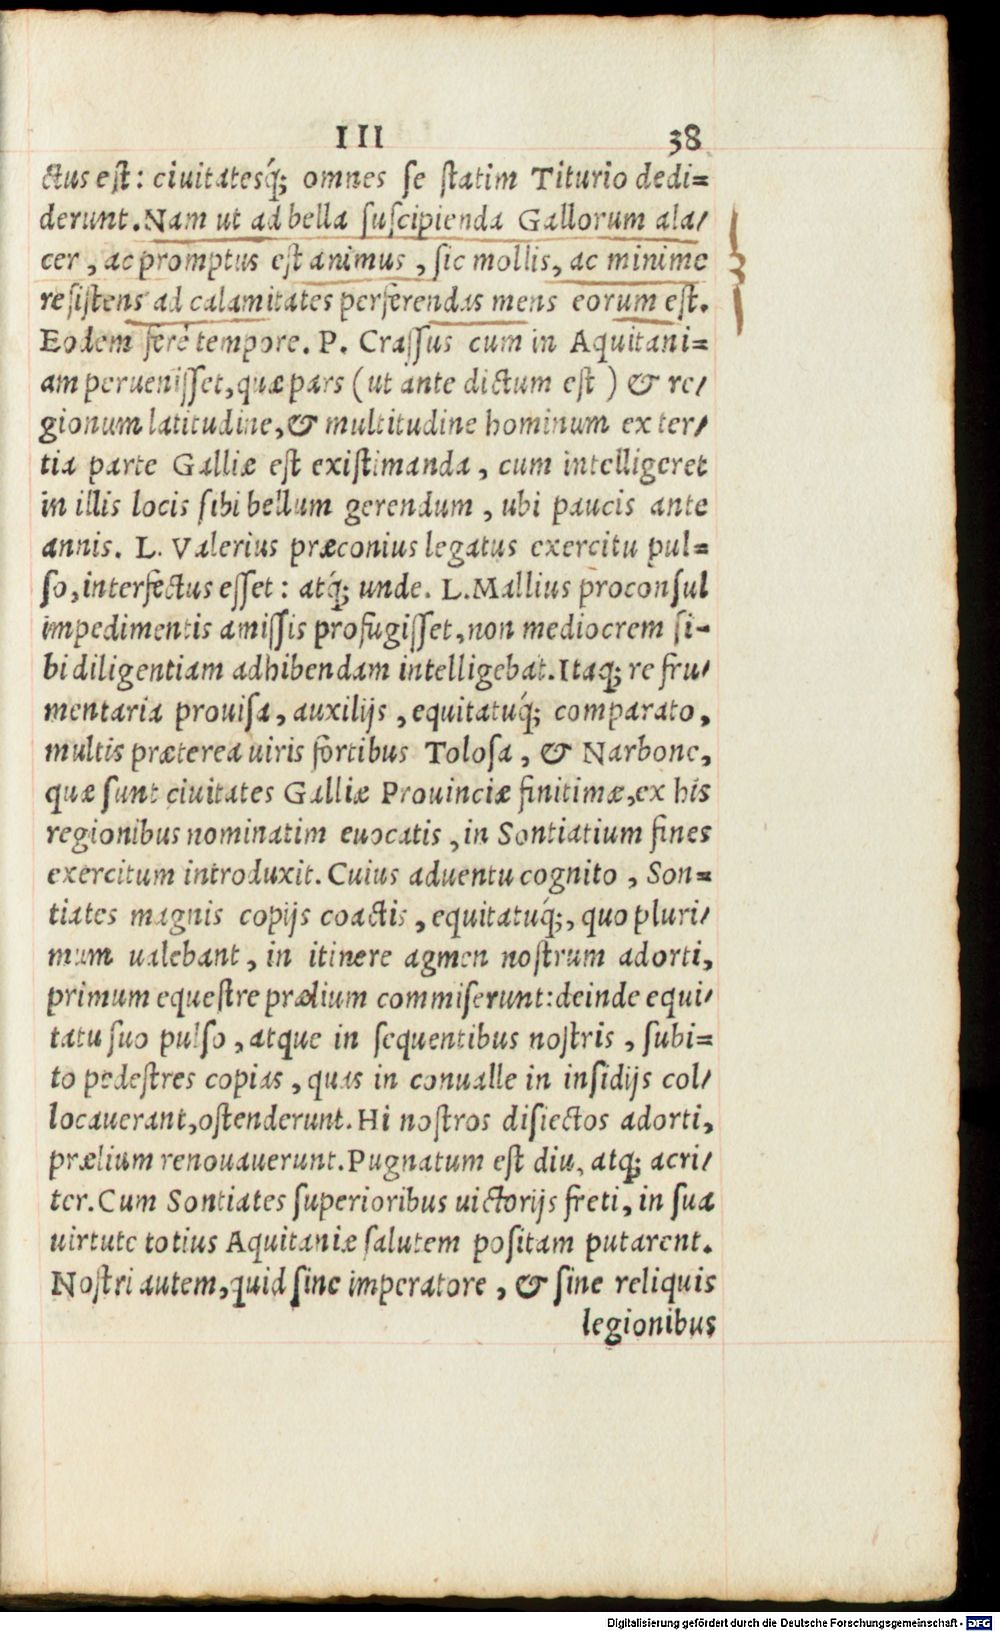 III 38
ctus est: ciuitatesq́; omnes se statim Titurio dedi=
derunt. Nam ut ad bella suscipienda Gallorum ala/
cer, ac promptus est animus, sic mollis, ac minime
resistens ad calamitates perferendas mens eorum est.
Eodem ferè tempore. P. Crassus cum in Aquitani=
am peruenisset, quæ pars (ut ante dictum est) & re/
gionum latitudine, & multitudine hominum ex ter/
tia parte Galliæ est existimanda, cum intelligeret
in illis locis sibi bellum gerendum, ubi paucis ante
annis. L. Valerius præconius legatus exercitu pul=
so, interfectus esset: atq́; unde. L. Mallius proconsul
impedimentis amissis profugisset, non mediocrem si-
bi diligentiam adhibendam intelligebat. Itaq; re fru/
mentaria prouisa, auxilijs, equitatuq́; comparato,
multis præterea uiris fortibus Tolosa, & Narbone,
quæ sunt ciuitates Galliæ Prouinciæ finitimæ, ex his
regionibus nominatim euocatis, in Sontiatium fines
exercitum introduxit. Cuius aduentu cognito, Son=
tiates magnis copijs coactis, equitatuq́;, quo pluri/
mum ualebant, in itinere agmen nostrum adorti,
primum equestre prælium commiserunt: deinde equi/
tatu suo pulso, atque in sequentibus nostris, subi=
to pedestres copias, quas in conualle in insidijs col/
locauerant, ostenderunt. Hi nostros disiectos adorti,
prælium renouauerunt. Pugnatum est diu, atq; acri/
ter. Cum Sontiates superioribus uictorijs freti, in sua
uirtute totius Aquitaniæ salutem positam putarent.
Nostri autem, quid sine imperatore, & sine reliquis
legionibus
Digitalisierung gefördert durch die Deutsche Forschungsgemeinschaft - DFG